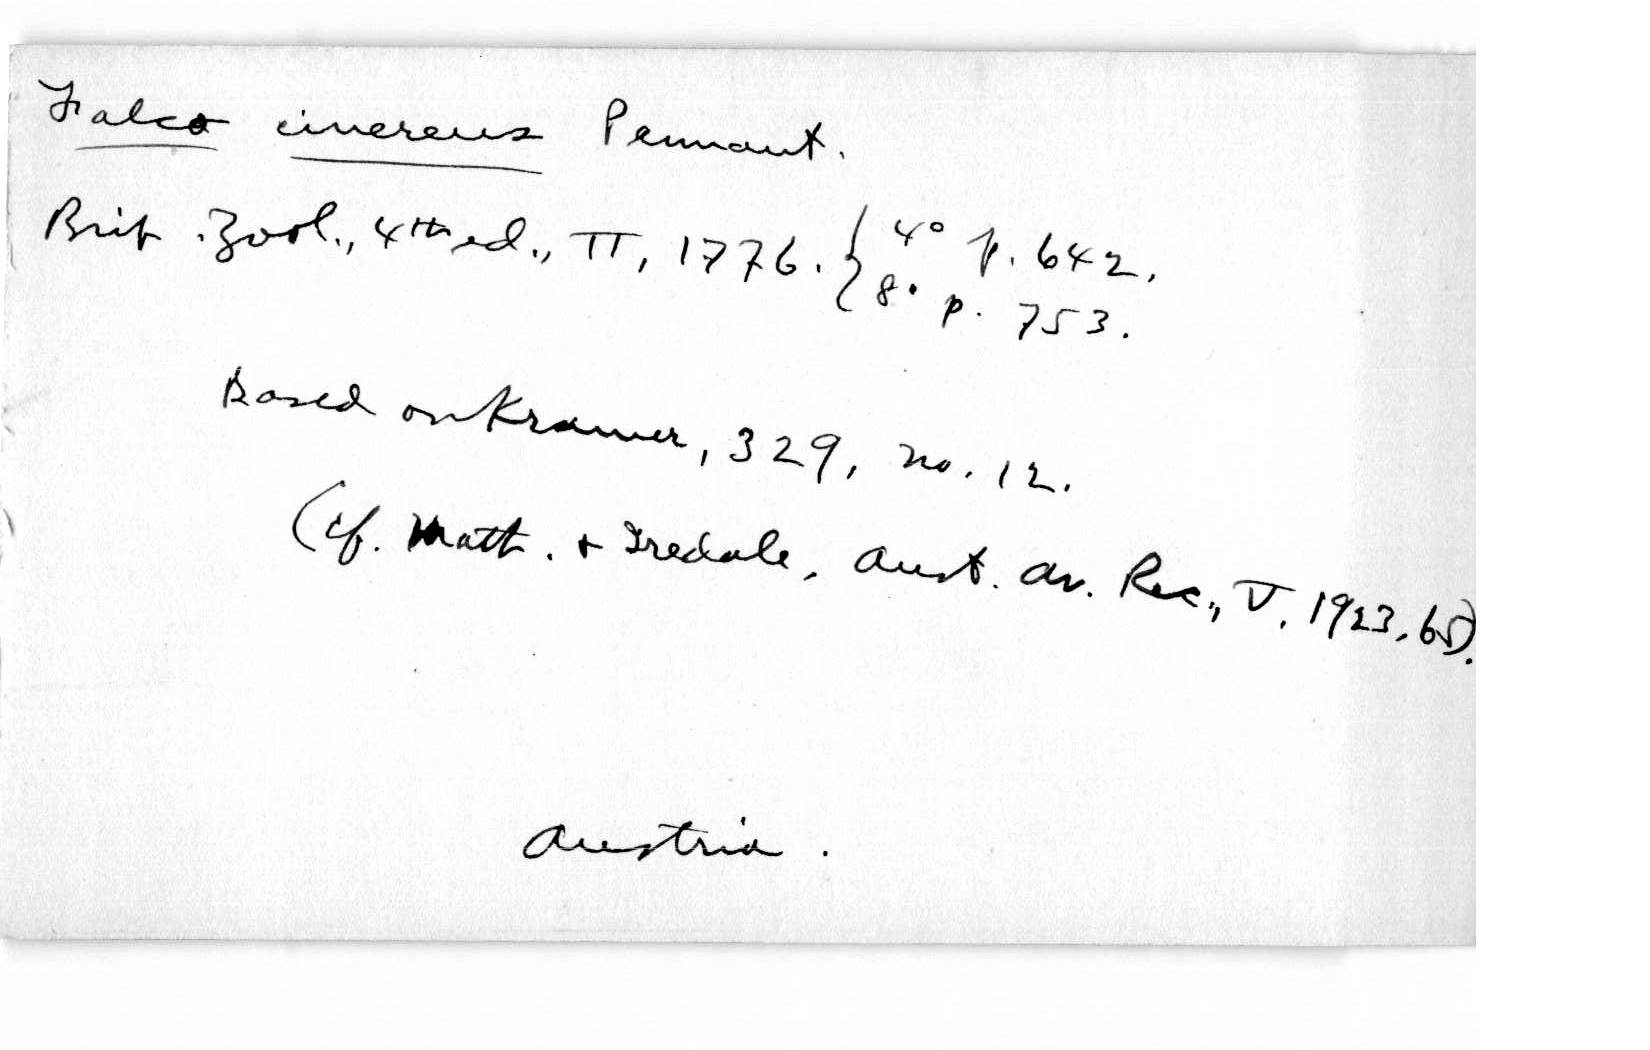 Falco cinereus Pennant.
Brit. Zool., 4th ed., II, 1776. { 4° p. 642.
8° p. 753.
Based on Kramer, 329, no. 12.
(cf. Math. + Iredale, Aust. Av. Rec., V, 1923, 65).
Austria.